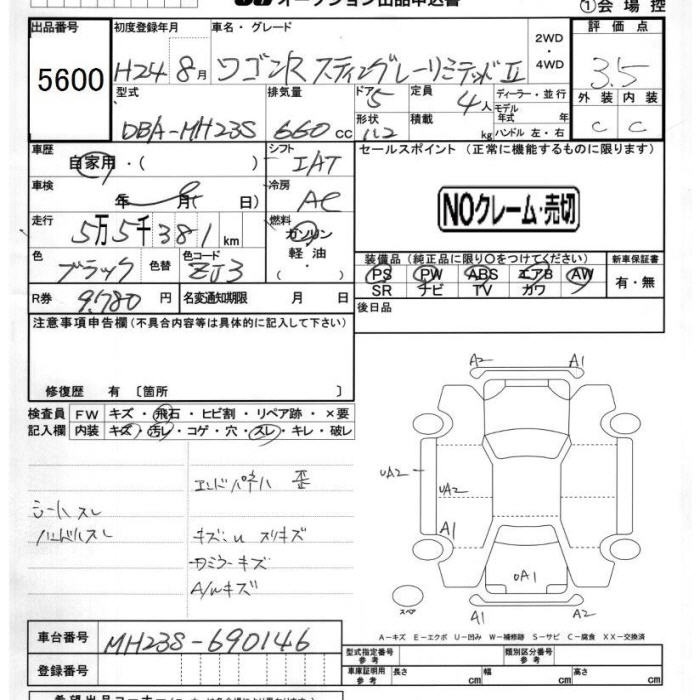 オークション出品申込書
①会場控
出品番号 初度登録年月 車名・グレード 2WD・4WD 評価点
5600 H24 8月 ワゴンR スティングレーリミテッドII 3.5
型式 排気量 ドア 5 定員 4人 ディーラー・並行 外装 内装
DBA-MH23S 660cc 形状 積載 kg モデル年式 年 ハンドル 左・右 C C
車歴 自家用・( ) シフト IAT セールスポイント (正常に機能するものに限ります)
車検 年 月 日) 冷房 AC
NOクレーム・売切
走行 5万5千381km 燃料 ガソリン・軽油・
色 ブラック 色替 色コード ZJ3
装備品(純正品に限り○をつけてください) 新車保証書
PS PW ABS エアB AW 有・無
SR ナビ TV カワ
R券 9,780円 名変通知期限 月 日 後日品
注意事項申告欄(不具合内容等は具体的に記入して下さい)
修復歴 有〔箇所 〕
検査員 FW キズ・飛石・ヒビ割・リペア跡・×要
記入欄 内装 キズ・汚レ・コゲ・穴・スレ・キレ・破レ
A2 A1
エンドパネル 歪
シートスレ
ハンドルスレ キズ・U スリキズ
ミラーキズ
A/Wキズ
UA2
UA2
A1
UA1
スペア
A1 A2
A-キズ E-エクボ U-凹み W-補修跡 S-サビ C-腐食 XX-交換済
車台番号 MH23S-690146
型式指定番号 参考 類別区分番号 参考
登録番号
車庫証明用 参考 長さ cm 幅 cm 高さ cm